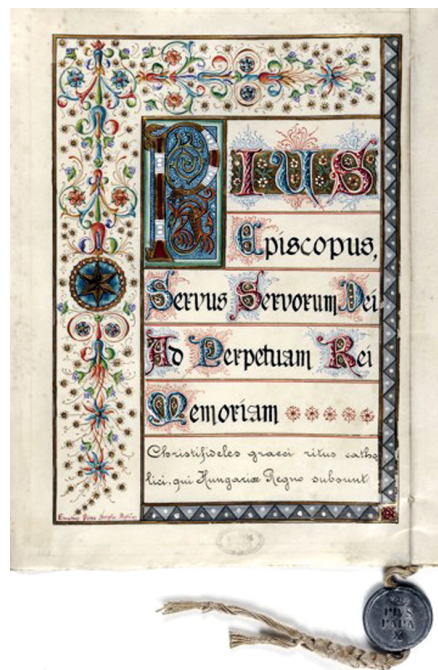 PIUS
Episcopus,
Servus Servorum Dei
Ad Perpetuam Rei
Memoriam
Christifideles graeci ritus catho
lici, qui Hungariæ Regno subsunt
PIVS
PAPA
X